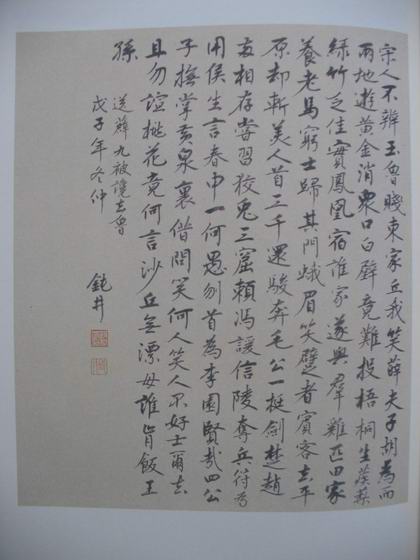 宋人不辨玉魯賤東家丘我笑薛夫子胡為而
兩地遊黃金消衆口白璧竟難投梧桐生蒺藜
綠竹乏佳實鳳凰宿誰家遂與羣雞匹田家
養老馬窮士歸其門蛾眉笑躄者賓客去平
原却斬美人首三千還駿奔毛公一挺劍楚趙
兩相存嘗習狡兔三窟賴馮諼信陵奪兵符為
用侯生言春申一何愚刎首為李園賢哉四公
子撫掌黃泉裏借問笑何人笑人不好士爾去
且勿諠桃花竟何言沙丘無漂母誰肯飯王
孫
送薛九被讒去魯
戊子年冬仲
鈍井